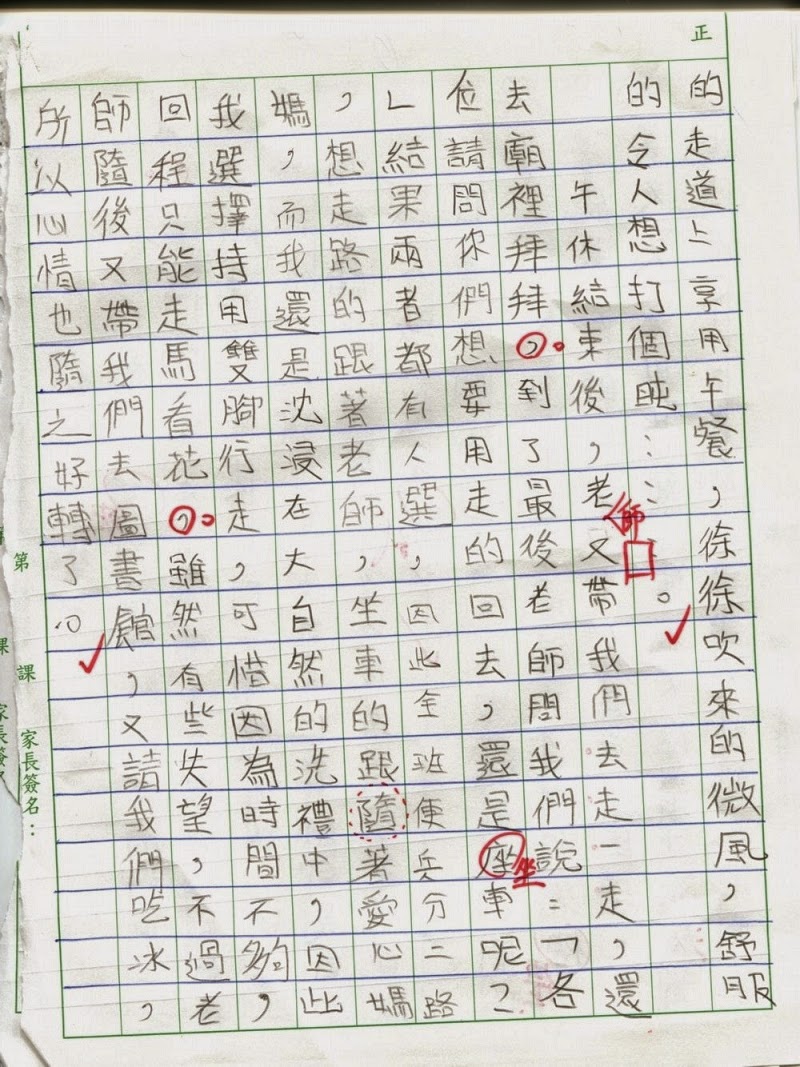 正
的走道上享用午餐，徐徐吹來的微風，舒服
的令人想打個盹……。
午休結東後，老又帶我們去走一走，還
師
去廟裡拜拜，到了最後老師問我們說：「各
位請問你們想要用走的回去，還是座車呢？
坐
」結果兩者都有人選，因此全班便兵分二路
，想走路的跟著老師，坐車的跟隨著愛心媽
媽，而我還是沈浸在大自然的洗禮中，因此
我選擇持用雙腳行走，可惜因為時間不夠，
回程只能走馬看花，雖然有些失望，不過老
師隨後又帶我們去圖書館，又請我們吃冰，
所以心情也隨之好轉了。
第 課 家長簽名：